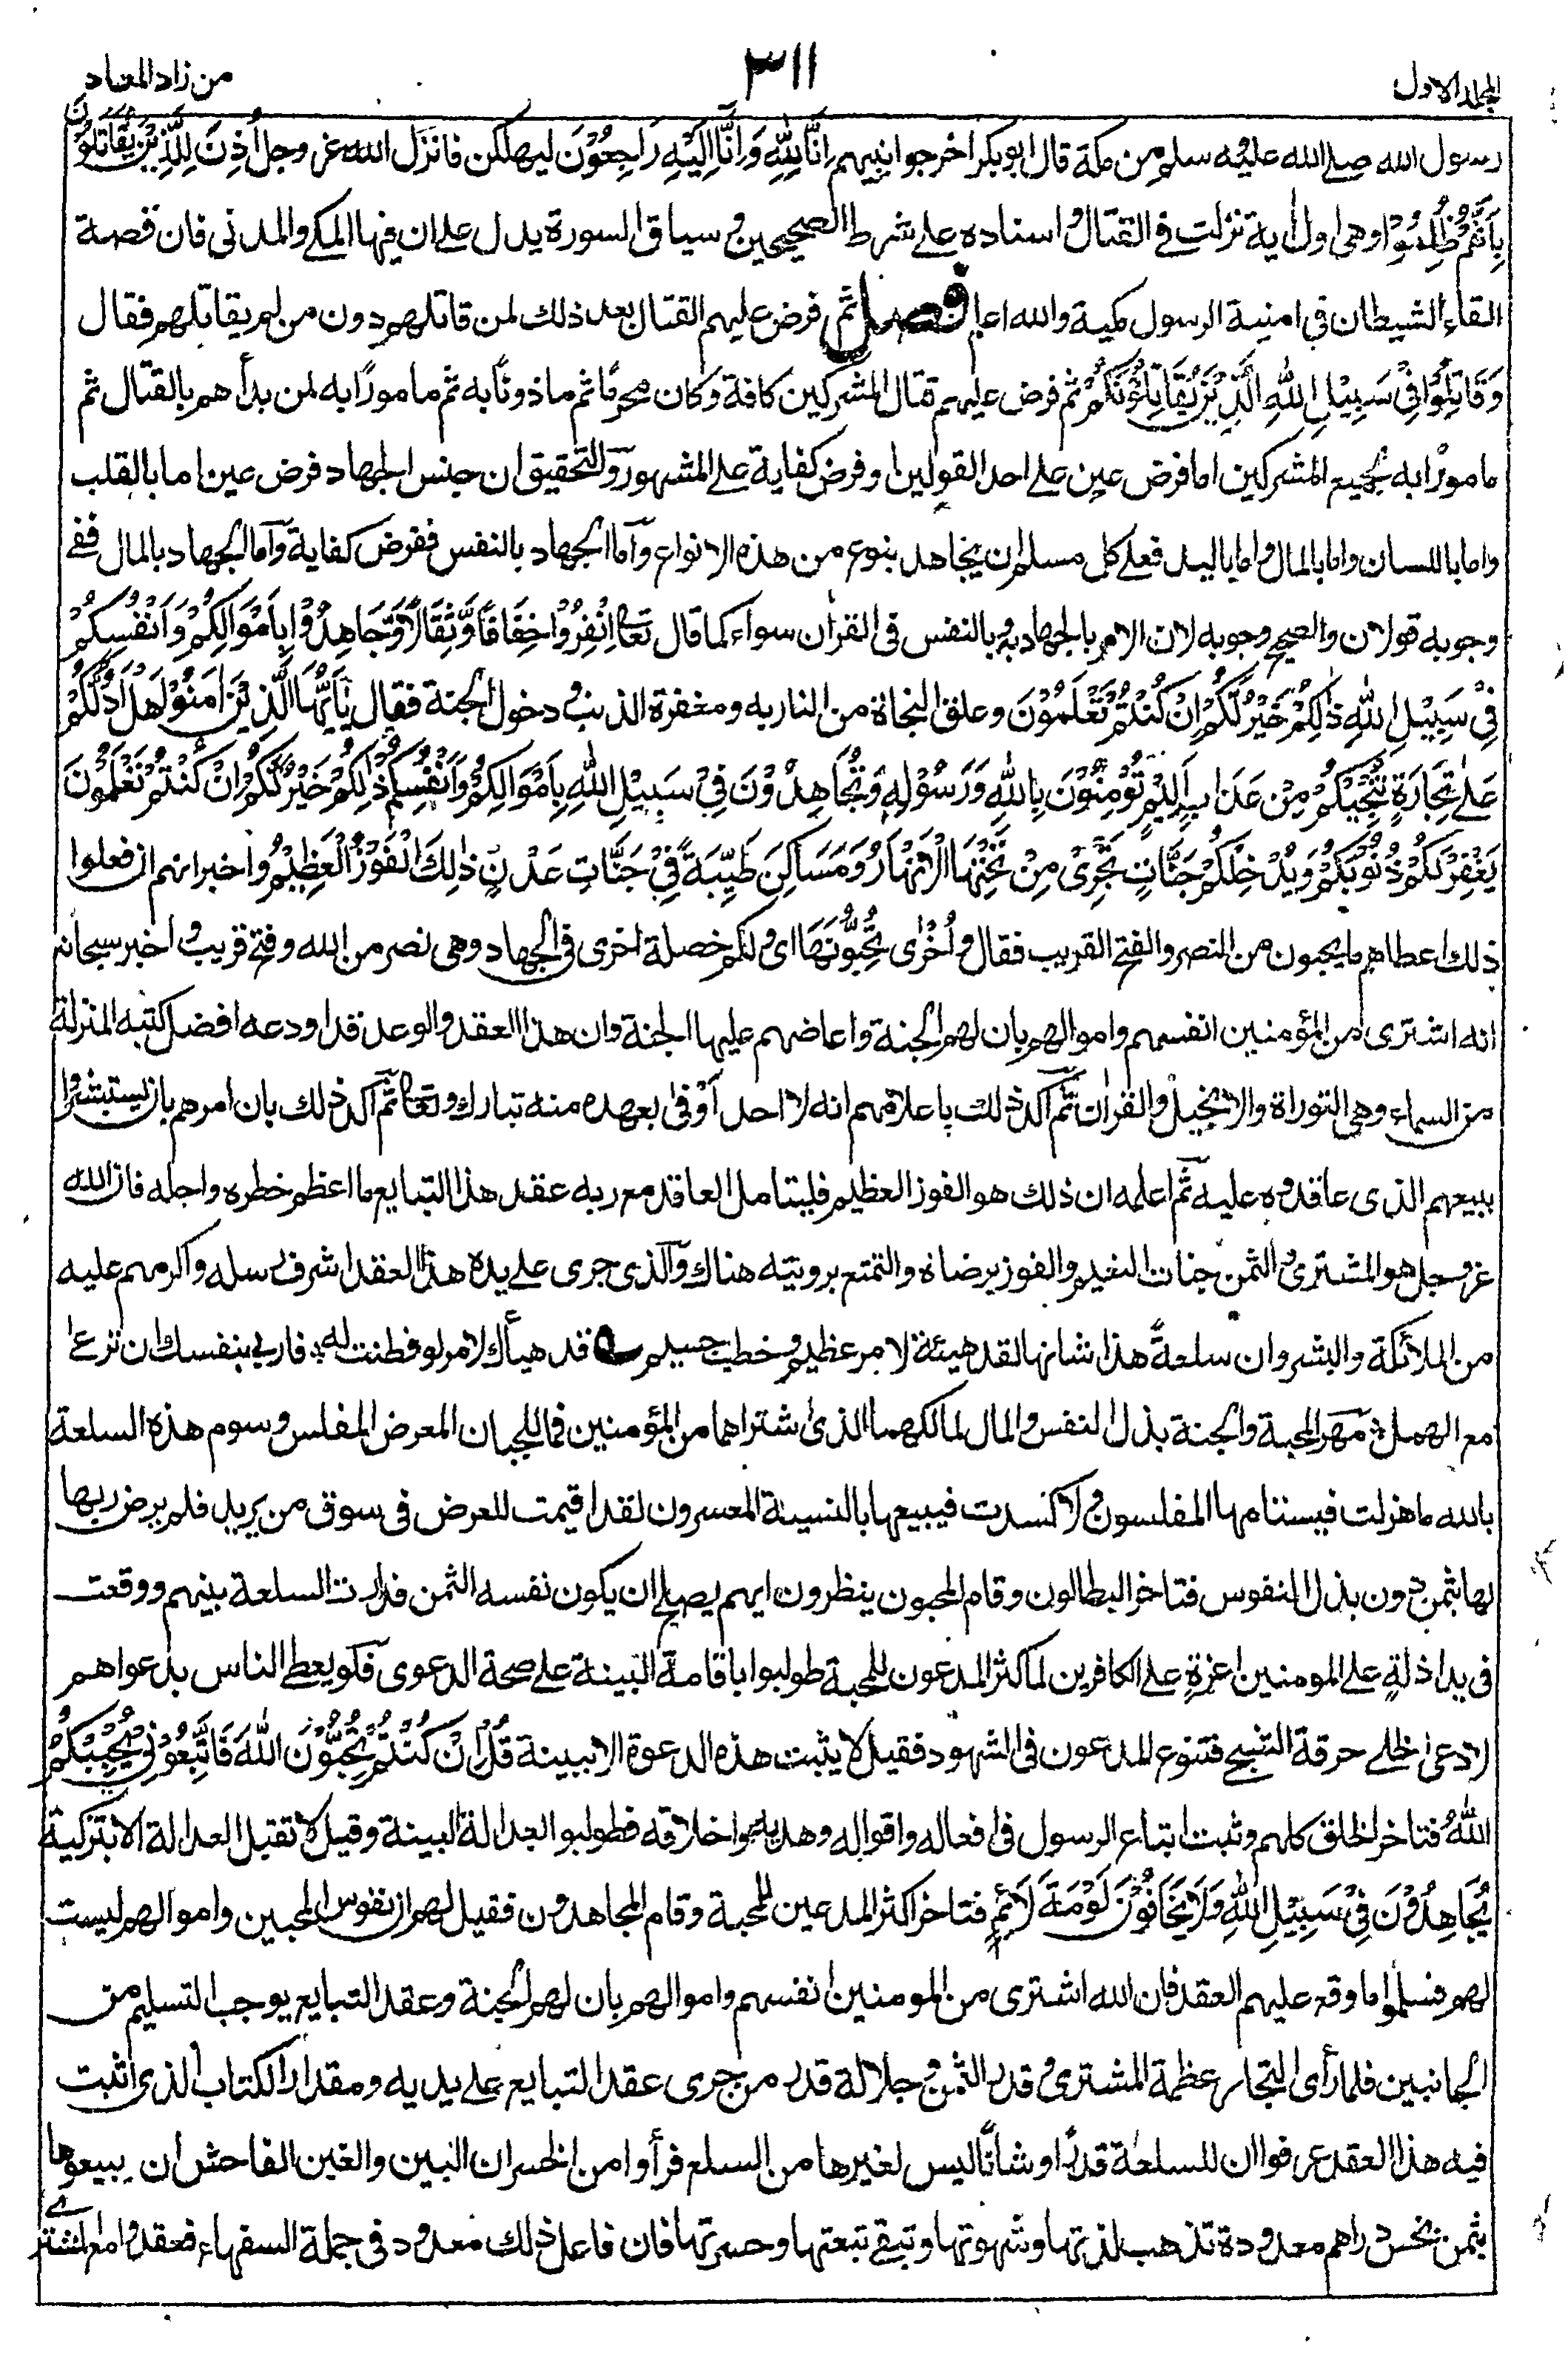 المجلد الاول
٣١١
من زاد المعاد
رسول الله صلے الله عليه وسلم من مكة قال ابو بكر اخرجوا نبيهم اِنَّا لِلّٰهِ وَاِنَّا اِلَيْهِ رَاجِعُوْنَ ليهلكن فانزل الله عز وجل اُذِنَ لِلَّذِيْنَ يُقَاتَلُوْنَ
بِاَنَّهُمْ ظُلِمُوْا وهى اول اية نزلت فى القتال واسناده على شرط الصحيحين وسياق السورة يدل على ان فيها المكى والمدنى فان قصة
القاء الشيطان فى امنية الرسول مكية والله اعلم فصل ثم فرض عليهم القتال بعد ذلك لمن قاتلهم دون من لم يقاتلهم فقال
وَقَاتِلُوْا فِيْ سَبِيْلِ اللّٰهِ الَّذِيْنَ يُقَاتِلُوْنَكُمْ ثم فرض عليهم قتال المشركين كافة وكان محرما ثم ماذونًا به ثم مامورًا به لمن بدأهم بالقتال ثم
مامورًا به لجميع المشركين اما فرض عين على احد القولين او فرض كفاية على المشهور والتحقيق ان جنس الجهاد فرض عين اما بالقلب
واما باللسان واما بالمال واما باليد فعلى كل مسلم ان يجاهد بنوع من هذه الانواع وآما الجهاد بالنفس ففرض كفاية وآما الجهاد بالمال ففے
وجوبه قولان والصحيح وجوبه لان الامر بالجهاد به وبالنفس فى القران سواء كما قال تعالى اِنْفِرُوْا خِفَافًا وَّثِقَالًا وَّجَاهِدُوْا بِاَمْوَالِكُمْ وَاَنْفُسِكُمْ
فِيْ سَبِيْلِ اللّٰهِ ذٰلِكُمْ خَيْرٌ لَّكُمْ اِنْ كُنْتُمْ تَعْلَمُوْنَ وعلق النجاة من النار به ومغفرة الذنب ودخول الجنة فقال يٰاَيُّهَا الَّذِيْنَ اٰمَنُوْا هَلْ اَدُلُّكُمْ
عَلٰى تِجَارَةٍ تُنْجِيْكُمْ مِنْ عَذَابٍ اَلِيْمٍ تُؤْمِنُوْنَ بِاللّٰهِ وَرَسُوْلِهٖ وَتُجَاهِدُوْنَ فِيْ سَبِيْلِ اللّٰهِ بِاَمْوَالِكُمْ وَاَنْفُسِكُمْ ذٰلِكُمْ خَيْرٌ لَّكُمْ اِنْ كُنْتُمْ تَعْلَمُوْنَ
يَغْفِرْ لَكُمْ ذُنُوْبَكُمْ وَيُدْخِلْكُمْ جَنَّاتٍ تَجْرِيْ مِنْ تَحْتِهَا الْاَنْهَارُ وَمَسَاكِنَ طَيِّبَةً فِيْ جَنَّاتِ عَدْنٍ ذٰلِكَ الْفَوْزُ الْعَظِيْمُ واخبر انهم ان فعلوا
ذلك اعطاهم ما يحبون من النصر والفتح القريب فقال وَاُخْرٰى تُحِبُّوْنَهَا اى ولكم خصلة اخرى فى الجهاد وهى نصر من الله وفتح قريب واخبر سبحانه
انه اشترى من المؤمنين انفسهم واموالهم بان لهم الجنة واعاضهم عليها الجنة وان هذا العقد والوعد قد اودعه افضل كتبه المنزلة
من السماء وهى التوراة والانجيل والقران ثم اكد ذلك باعلامهم انه لا احد اوفى بعهده منه تبارك وتعالى ثم اكد ذلك بان امرهم بان يستبشروا
ببيعهم الذى عاقدوه عليه ثم اعلمهم ان ذلك هو الفوز العظيم فليتامل العاقد مع ربه عقد هذا التبايع ما اعظم خطره واجله فان الله
عز وجل هو المشترى والثمن جنات النعيم والفوز برضاه والتمتع برويته هناك والذى جرى على يده هذا العقد اشرف رسله واكرمهم عليه
من الملائكة والبشر وان سلعةً هذا شانها لقد هيئة لامر عظيم وخطب جسيم قد هيأك لامر لو فطنت له فاربى بنفسك ان ترعى
مع الهمل مهر المحبة والجنة بذل النفس والمال لمالكهما الذى اشتراهما من المؤمنين فما للجبان المعرض المفلس وسوم هذه السلعة
بالله ما هزلت فيستامها المفلسون ولا كسدت فيبيعها بالنسيئة المعسرون لقد اقيمت للعرض فى سوق من يريد فلم يرض ربها
لها بثمن دون بذل النفوس فتاخر البطالون وقام المحبون ينظرون ايهم يصلح ان يكون نفسه الثمن فدارت السلعة بينهم ووقعت
فى يد اذلة على المومنين اعزة على الكافرين لما كثر المدعون للمحبة طولبوا باقامة البينة على صحة الدعوى فلو يعطى الناس بدعواهم
لادعى الخلى حرقة الشجى فتنوع المدعون فى الشهود فقيل لا يثبت هذه الدعوة الا ببينة قُلْ اِنْ كُنْتُمْ تُحِبُّوْنَ اللّٰهَ فَاتَّبِعُوْنِيْ يُحْبِبْكُمُ
اللّٰهُ فتاخر الخلق كلهم وثبت اتباع الرسول فى افعاله واقواله وهديه واخلاقه فطولبوا بعدالة البينة وقيل لا تقبل العدالة الا بتزكية
يُجَاهِدُوْنَ فِيْ سَبِيْلِ اللّٰهِ وَلَا يَخَافُوْنَ لَوْمَةَ لَائِمٍ فتاخر اكثر المدعين للمحبة وقام المجاهدون فقيل لهم ان نفوس المحبين واموالهم ليست
لهم فسلموا ما وقع عليهم العقد فان الله اشترى من المومنين انفسهم واموالهم بان لهم الجنة وعقد التبايع يوجب التسليم من
الجانبين فلما رأى التجار عظمة المشترى وقدر الثمن وجلالة قدر من جرى عقد التبايع على يديه ومقدار الكتاب الذى اثبت
فيه هذا العقد عرفوا ان للسلعة قدرًا وشانًا ليس لغيرها من السلع فرأوا من الخسران البين والغبن الفاحش ان يبيعوها
بثمن بخس دراهم معدودة تذهب لذتها وشهوتها وتبقى تبعتها وحسرتها فان فاعل ذلك معدود فى جملة السفهاء فعقدوا مع المشترے